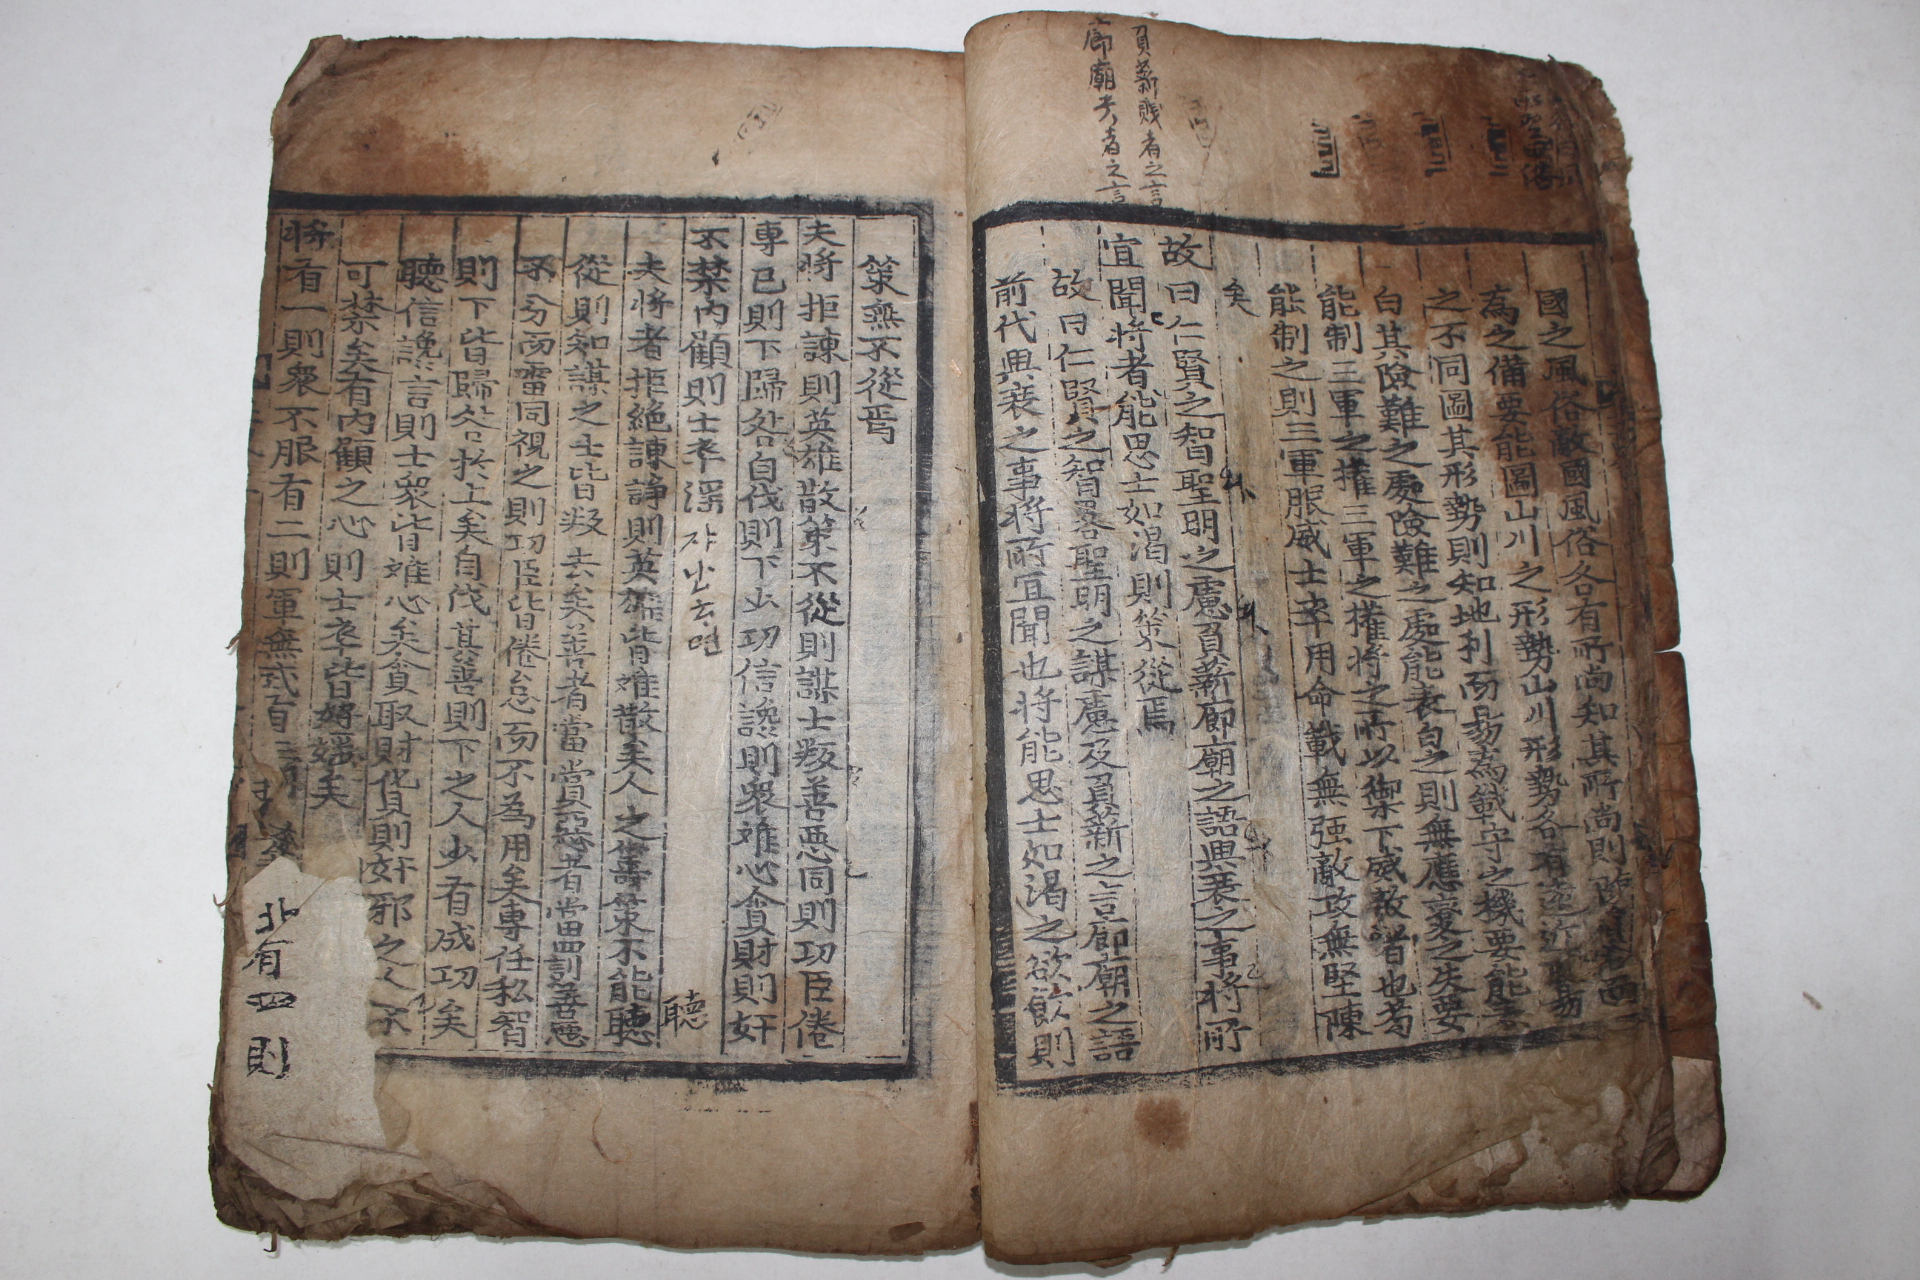 負薪賤者之言
廊廟貴者之言
國之風俗敵國風俗各有所尚知其所尚則
為之備要能圖山川之形勢山川形勢各有遠近險易
之不同圖其形勢則知地利而易為戰守之機要能表
白其險難之處險難之處能表白之則無應變之失要
能制三軍之權三軍之權將之所以御下威敵者也苟
能制之則三軍服威士卒用命戰無强敵攻無堅陳
矣
故曰仁賢之智聖明之慮負薪廊廟之語興衰之事將所
宜聞將者能思士如渴則策從焉
故曰仁賢之智畧聖明之謀慮及負薪之言廊廟之語
前代興衰之事將所宜聞也將能思士如渴之欲飮則
策無不從焉
夫將拒諫則英雄散策不從則謀士叛善惡同則功臣倦
專己則下歸咎自伐則下少功信讒則衆难心貪財則奸
不禁內顧則士卒淫
聽
夫將者拒絶諫諍則英雄皆难散矣人之籌策不能聽
從則知謀之士皆叛去矣善者當賞惡者當罰善惡
不分而雷同視之則功臣皆倦怠而不為用矣專任私智
則下皆歸咎於上矣自伐其善則下之人少有成功矣
聽信讒言則士衆皆难心矣貪取財貨則奸邪之人不
可禁矣有內顧之心則士卒皆婬 矣
將有一則衆不服有二則軍無式有三則
北有四則